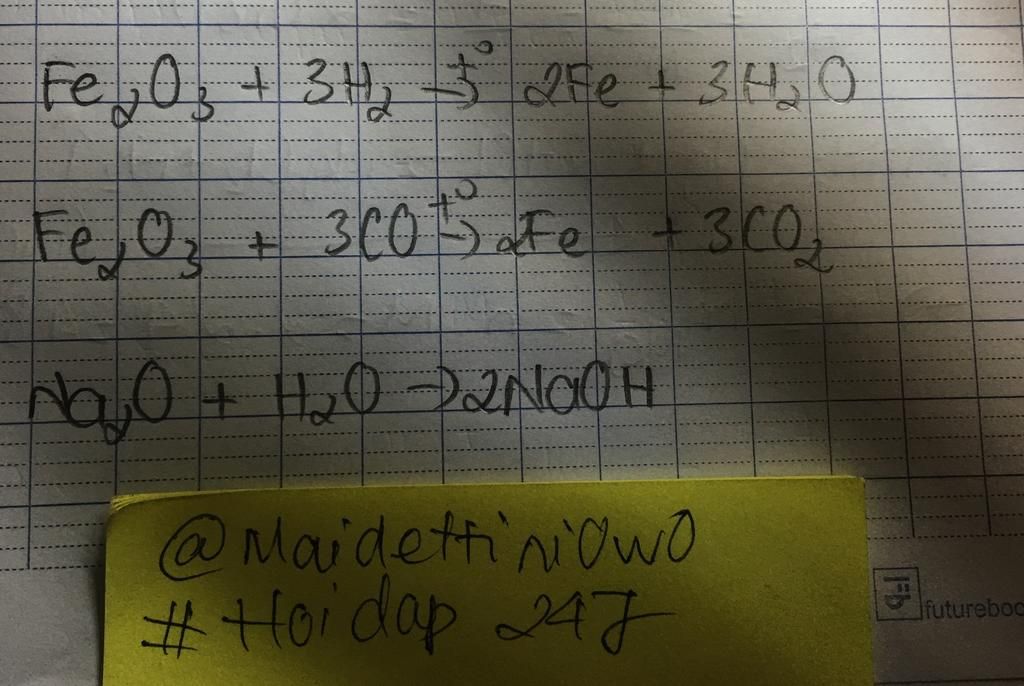 Fe₂O₃ + 3H₂ →t° 2Fe + 3H₂O
Fe₂O₃ + 3CO →t° 2Fe + 3CO₂
Na₂O + H₂O → 2NaOH
@Maidettini0w0
# Hoidap 247
futureboo